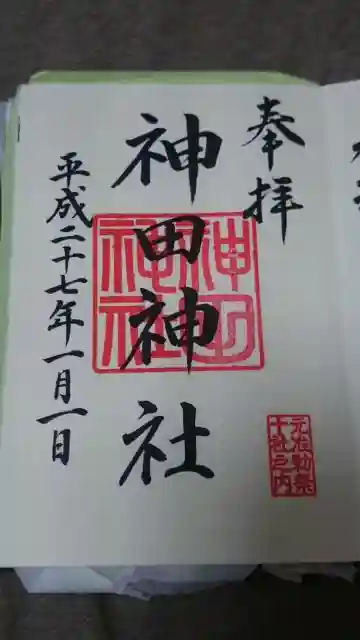 奉拝
神田神社
平成二十七年一月一日
神田神社
元准勅祭
十社之内